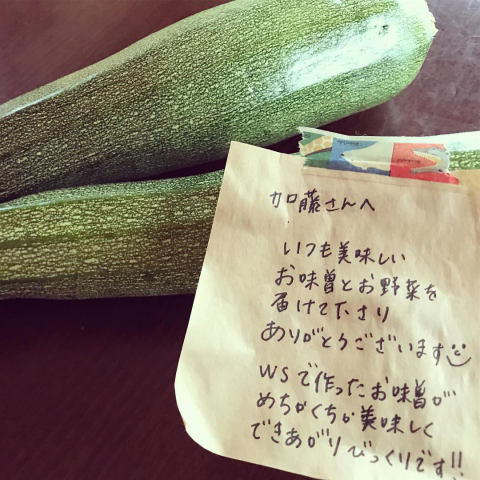 加藤さんへ
いつも美味しい
お味曽とお野菜を
届けて下さり
ありがとうございます
WSで作ったお味曽が
めちゃくちゃ美味しく
できあがりびっくりです!!